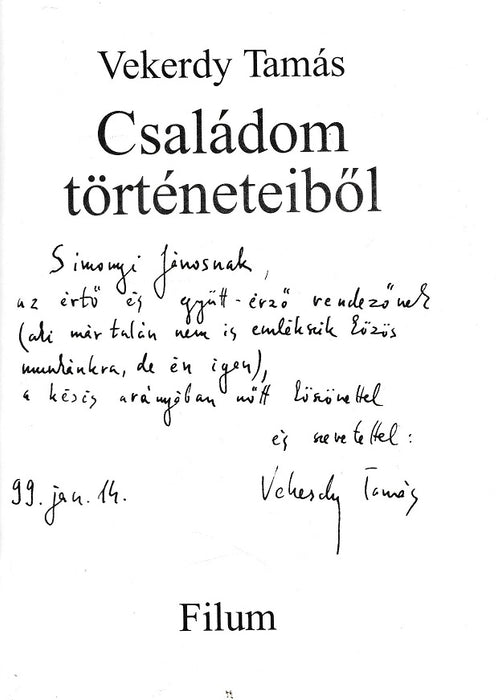 Vekerdy Tamás
Családom
történeteiből
Simonyi Jánosnak,
az értő és együtt-érző rendezőnek
(aki már talán nem is emlékszik közös
munkánkra, de én igen),
a késés arányában nőtt köszönettel
és szeretettel:
99. jan. 14.
Vekerdy Tamás
Filum